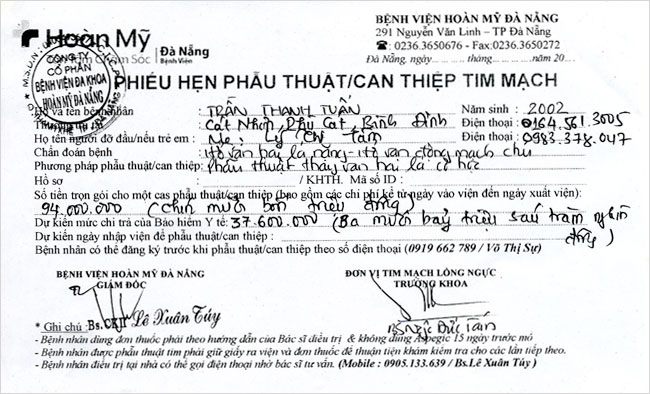 BỆNH VIỆN HOÀN MỸ ĐÀ NẴNG
291 Nguyễn Văn Linh – TP Đà Nẵng
☎: 0236.3650676 - Fax:0236.3650272
Đà Nẵng, ngày ........ tháng ........ năm 20....
Hoàn Mỹ Đà Nẵng
Chăm Sóc Bệnh Viện
CÔNG TY
CỔ PHẦN
BỆNH VIỆN ĐA KHOA
HOÀN MỸ ĐÀ NẴNG
PHIẾU HẸN PHẪU THUẬT/CAN THIỆP TIM MẠCH
Họ và tên bệnh nhân TRẦN THANH TUẤN Năm sinh : 2002
Cát Nhơn, Phù Cát, Bình Định Điện thoại : 0164.561.3005
Họ tên người đỡ đầu/nếu trẻ em : Mẹ: Lý Chi Tâm Điện thoại : 0983.378.047
Chẩn đoán bệnh : Hở van hai lá nặng - Hở van động mạch chủ
Phương pháp phẫu thuật/can thiệp: phẫu thuật thay van hai lá cơ học
Hồ sơ : / KHTH. Mã số ID :
Số tiền trọn gói cho một cas phẫu thuật/can thiệp (bao gồm các chi phí kể từ ngày vào viện đến ngày xuất viện):
94.000.000 (Chín mươi bốn triệu đồng)
Dự kiến mức chi trả của Bảo hiểm Y tế: 37.600.000 (Ba mươi bảy triệu sáu trăm nghìn
đồng)
Dự kiến ngày nhập viện để phẫu thuật/can thiệp :
Bệnh nhân có thể đăng ký trước khi phẫu thuật/can thiệp theo số điện thoại (0919 662 789 / Võ Thị Sự)
BỆNH VIỆN HOÀN MỸ ĐÀ NẴNG ĐƠN VỊ TIM MẠCH LỒNG NGỰC
GIÁM ĐỐC TRƯỞNG KHOA
Bs.CKII Lê Xuân Túy
* Ghi chú :
- Bệnh nhân dùng đơn thuốc phải theo hướng dẫn của Bác sĩ điều trị & không dùng Aspegic 15 ngày trước mổ
- Bệnh nhân được phẫu thuật tim phải giữ giấy ra viện và đơn thuốc để thuận tiện khám kiểm tra cho các lần tiếp theo.
- Bệnh nhân điều trị tại nhà có thể gọi điện thoại nhờ bác sĩ tư vấn. (Mobile : 0905.133.639 / Bs.Lê Xuân Túy )